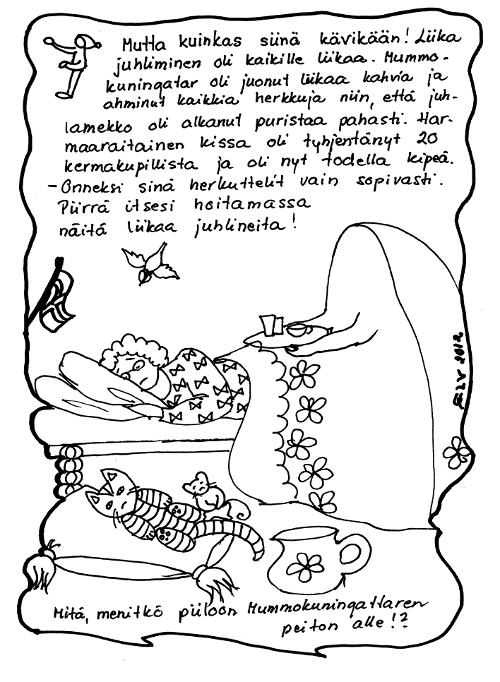 Mutta kuinkas siinä kävikään! Liika
juhliminen oli kaikille liikaa. Mummo-
kuningatar oli juonut liikaa kahvia ja
ahminut kaikkia herkkuja niin, että juh-
lamekko oli alkanut puristaa pahasti. Har-
maaraitainen kissa oli tyhjentänyt 20
kermakupillista ja oli nyt todella kipeä.
- Onneksi sinä herkuttelit vain sopivasti.
Piirrä itsesi hoitamassa
näitä liikaa juhlineita!
2012
Mitä, menitkö piiloon Mummokuningattaren
peiton alle!?